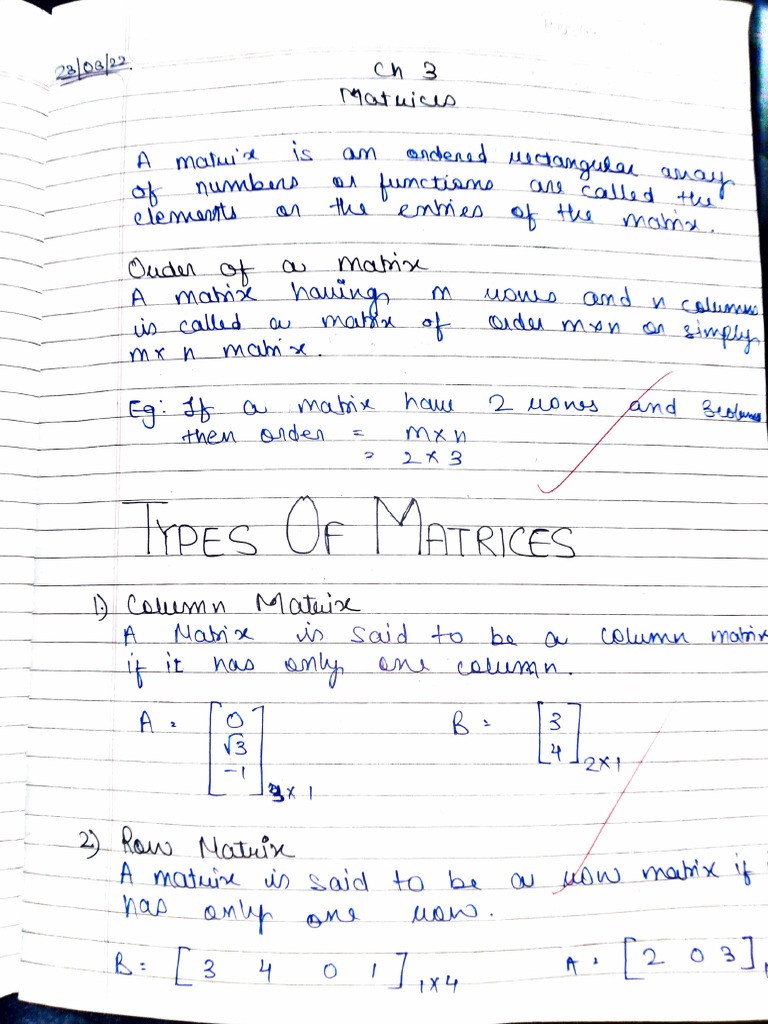 23/08/22
Ch 3
Matrices
A matrix is an ordered rectangular array
of numbers or functions are called the
elements or the entries of the matrix.
Order of a Matrix
A matrix having m rows and n columns
is called a matrix of order m×n or simply
m× n matrix.
Eg: If a matrix have 2 rows and 3 columns
then order = m×n
= 2×3
TYPES OF MATRICES
1) Column Matrix
A Matrix is said to be a column matrix
if it has only one column.
A = [0 √3 -1] 3×1 B = [3 4] 2×1
2) Row Matrix
A matrix is said to be a row matrix if
has only one row.
B = [3 4 0 1] 1×4 A = [2 0 3]